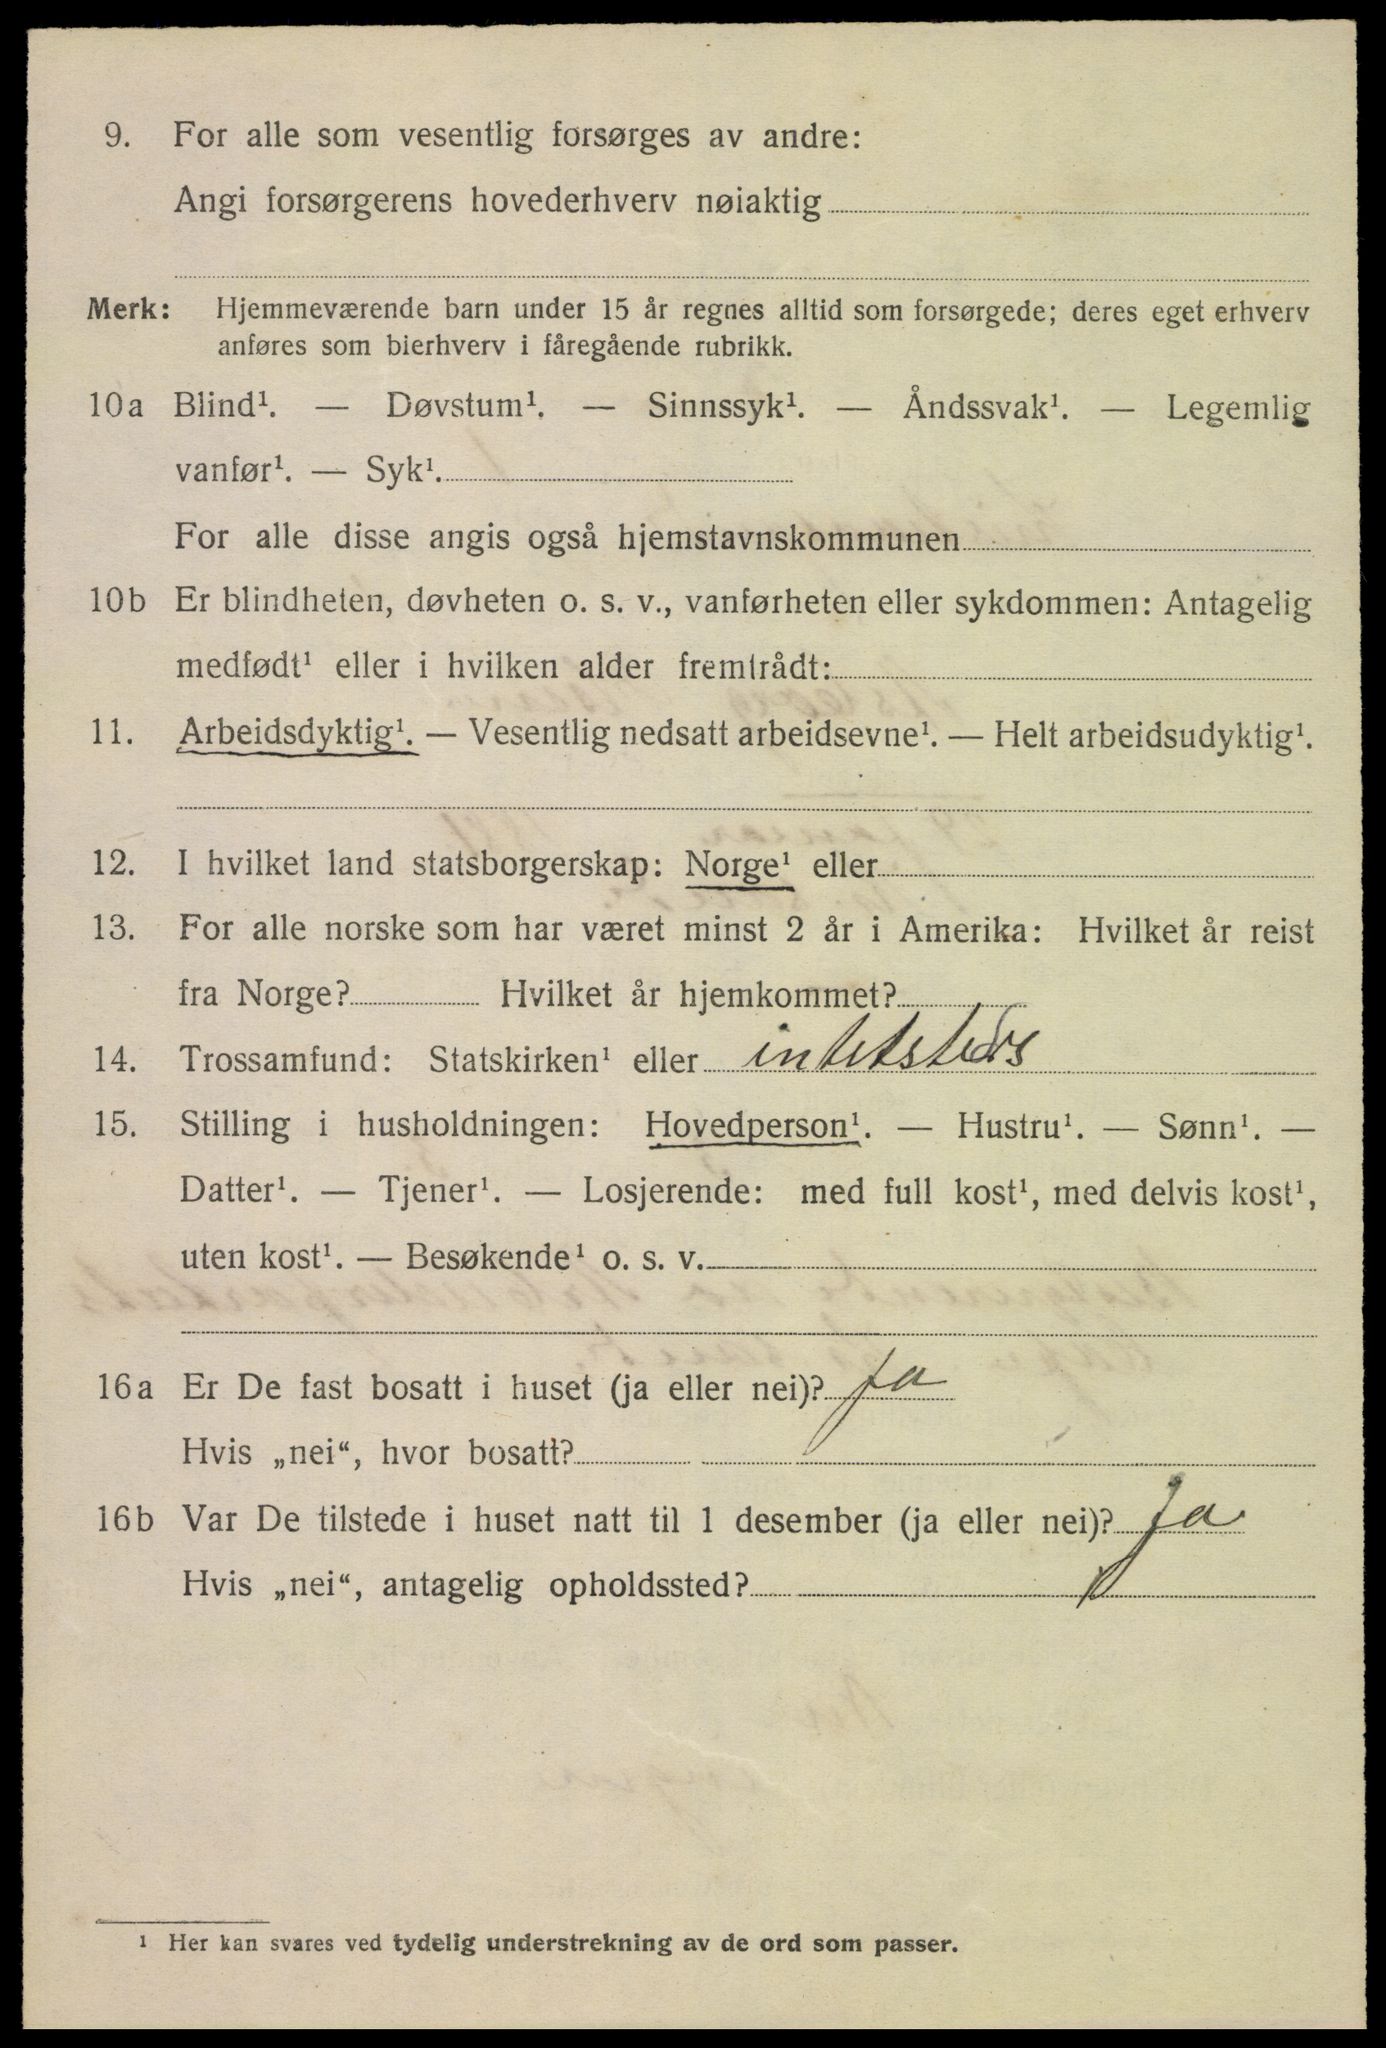 9. For alle som vesentlig forsørges av andre:
Angi forsørgerens hovederhverv nøiaktig
Merk: Hjemmeværende barn under 15 år regnes alltid som forsørgede; deres eget erhverv
anføres som bierhverv i fåregående rubrikk.
10a Blind¹. — Døvstum¹. — Sinnssyk¹. — Åndssvak¹. — Legemlig
vanfør¹. — Syk¹.
For alle disse angis også hjemstavnskommunen
10b Er blindheten, døvheten o. s. v., vanførheten eller sykdommen: Antagelig
medfødt¹ eller i hvilken alder fremtrådt:
11. Arbeidsdyktig¹. — Vesentlig nedsatt arbeidsevne¹. — Helt arbeidsudyktig¹.
12. I hvilket land statsborgerskap: Norge¹ eller
13. For alle norske som har været minst 2 år i Amerika: Hvilket år reist
fra Norge? Hvilket år hjemkommet?
14. Trossamfund: Statskirken¹ eller intetsteds
15. Stilling i husholdningen: Hovedperson¹. — Hustru¹. — Sønn¹. —
Datter¹. — Tjener¹. — Losjerende: med full kost¹, med delvis kost¹,
uten kost¹. — Besøkende¹ o. s. v.
16a Er De fast bosatt i huset (ja eller nei)? Ja
Hvis „nei“, hvor bosatt?
16b Var De tilstede i huset natt til 1 desember (ja eller nei)? Ja
Hvis „nei“, antagelig opholdssted?
¹ Her kan svares ved tydelig understrekning av de ord som passer.